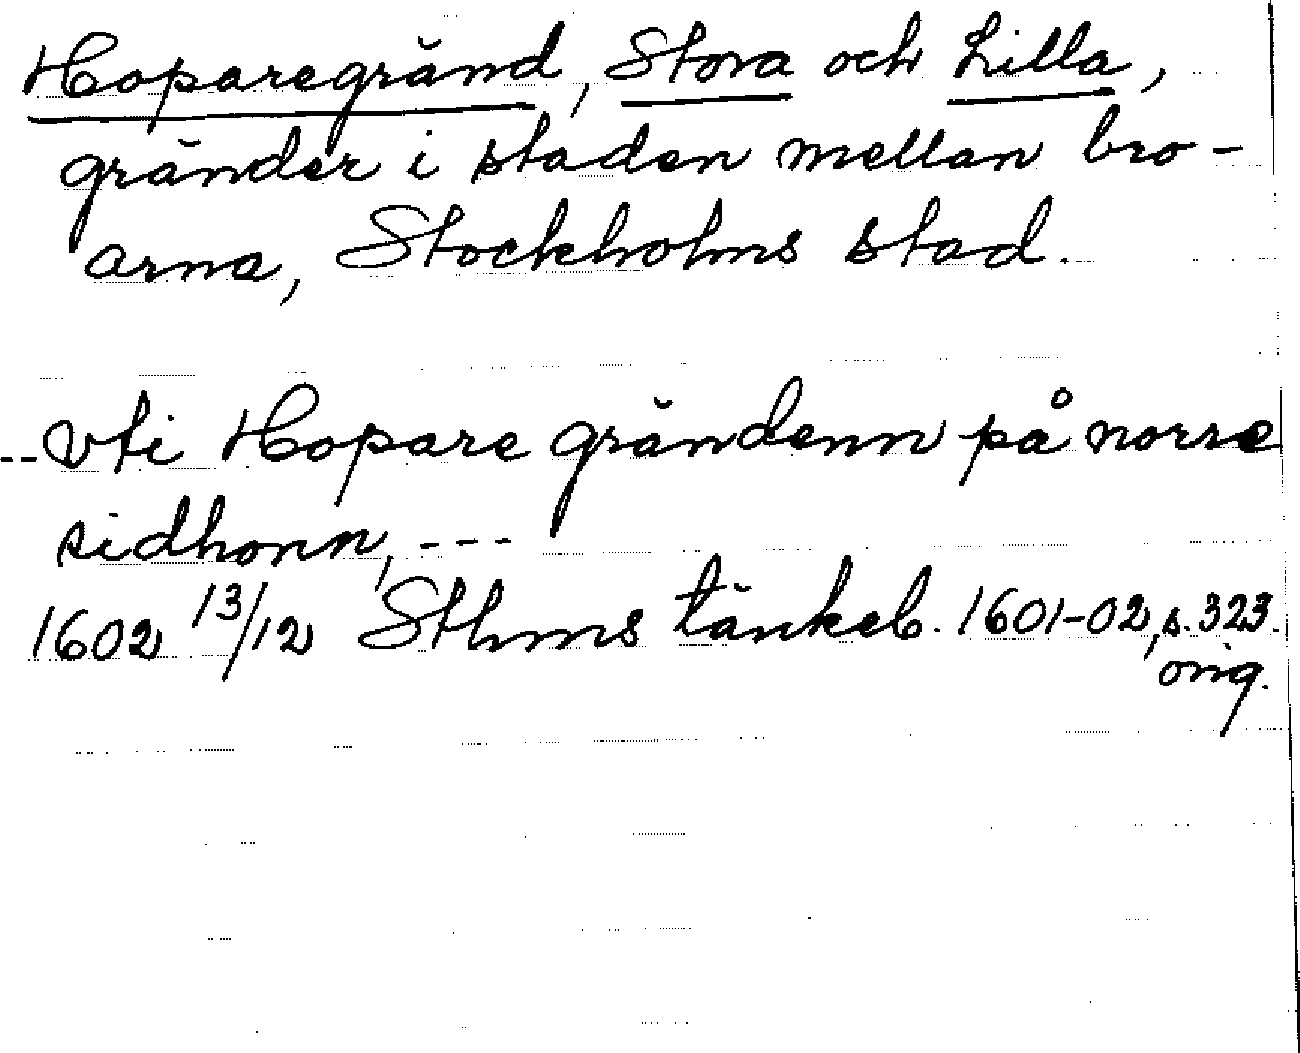 Hoparegränd, Stora och Lilla,
gränder i staden mellan bro-
arna, Stockholms stad.
--vti Hopare grändenn på norre
sidhonn, ---
1602 13/12 Sthms tänkeb. 1601-02, s. 323.
orig.